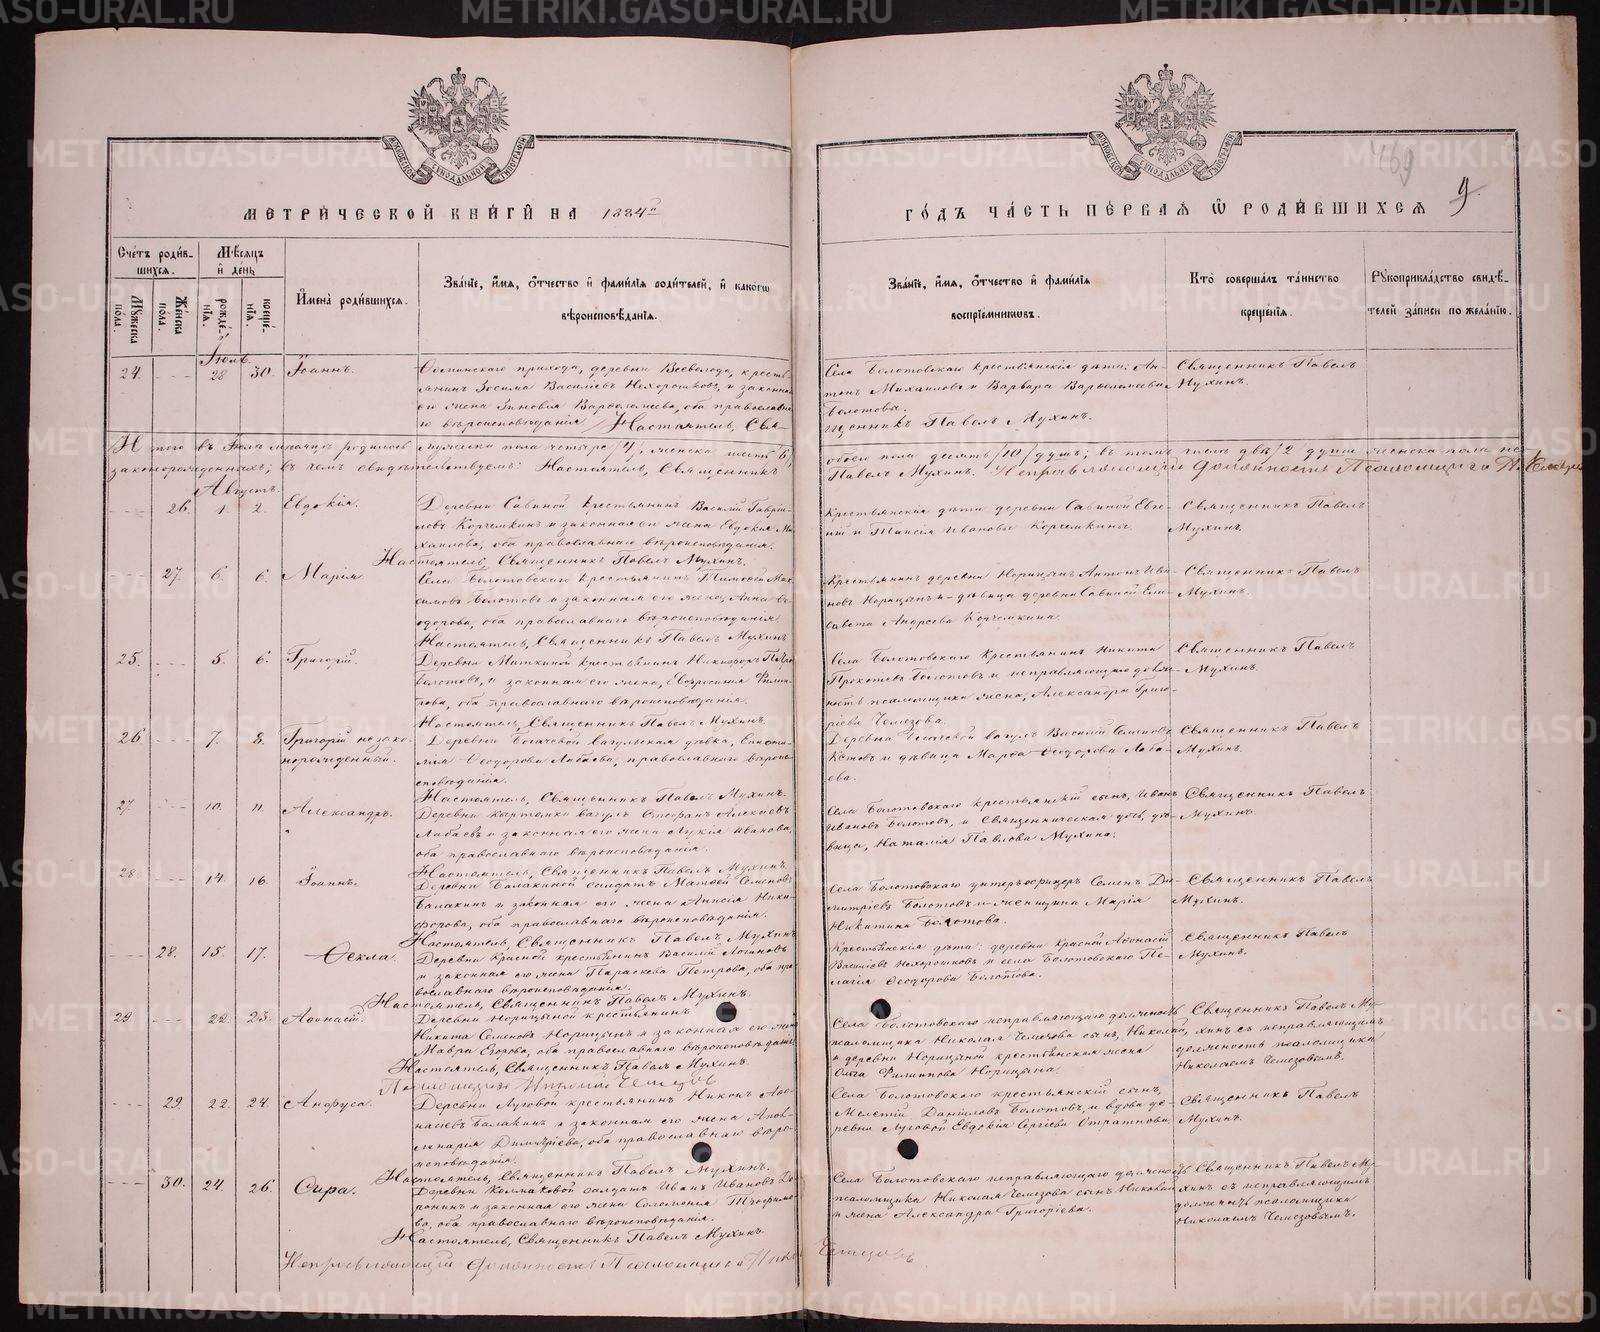 МЕТРИЧЕСКОЙ КНИГИ НА 1884й
ГОДЪ ЧАСТЬ ПЕРВАЯ Ѡ РОДИВШИХСЯ
469
9.
Счетъ родившихся.
Мужеска пола.
Женска пола.
Мѣсяцъ и день
рожденія.
крещенія.
Имена родившихся.
Званіе, имя, отчество и фамилія родителей, и какого
вѣроисповѣданія.
Званіе, имя, отчество и фамилія
воспріемниковъ.
Кто совершалъ таинство
крещенія.
Рукоприкладство свидѣ-
телей записи по желанію.
Іюль.
24. 28 30. Іоаннъ.
прихода, деревни Всеволода, кресть-
янинъ Зосима Васильевъ Нехорошковъ, и законная
его жена Зиновія Варѳоломеева, оба православна-
го вѣроисповѣданія. Настоятель, Свя-
щенникъ Павелъ Мухинъ.
Села Болотовскаго крестьянскія дѣти: Ан-
тонъ Михаиловъ и Варвара Варѳоломеева
Болотовы.
Священникъ Павелъ
Мухинъ.
Итого въ Іюлѣ мѣсяцѣ родилось мужеска пола четыре /4/, женска шесть /6/,
обоего пола десять /10/ душъ; въ томъ числѣ двѣ /2/ души женска пола не-
законорожденныхъ; въ чемъ свидѣтельствуемъ: Настоятель, Священникъ
Павелъ Мухинъ. Исправляющій должность Псаломщика Н. Чемезовъ
Августъ.
26. 1. 2. Евдокія.
Деревни Савиной крестьянинъ Василій Гаври-
ловъ Корчемкинъ и законная его жена Евдокія Ми-
хаилова, оба православнаго вѣроисповѣданія.
Настоятель, Священникъ Павелъ Мухинъ.
Крестьянскія дѣти деревни Савиной Евге-
ній и Таисія Ивановы Корчемкины.
Священникъ Павелъ
Мухинъ.
27. 6. 6. Марія.
Села Болотовскаго крестьянинъ Тимоѳей Мак-
симовъ Болотовъ и законная его жена, Анна Ѳе-
одорова, оба православнаго вѣроисповѣданія.
Настоятель, Священникъ Павелъ Мухинъ.
Крестьянинъ деревни Норицынъ Антонъ Ива-
новъ Норицынъ и дѣвица деревни Савиной Ели-
савета Андреева Корчемкина.
Священникъ Павелъ
Мухинъ.
25. 5. 6. Григорій.
Деревни Миткиной крестьянинъ Никифоръ
Болотовъ, и законная его жена, Евфросинія Филип-
пова, оба православнаго вѣроисповѣданія.
Настоятель, Священникъ Павелъ Мухинъ.
Села Болотовскаго крестьянинъ Никита
Прокопіевъ Болотовъ и исправляющаго долж-
ность псаломщика жена, Александра Григо-
ріева Чемезова.
Священникъ Павелъ
Мухинъ.
26 7. 8. Григорій незако-
норожденный.
Деревни Богачевой вагульская дѣвка,
Ѳеодорова Лабаева, православнаго вѣрои-
сповѣданія.
Настоятель, Священникъ Павелъ Мухинъ.
Деревни вагулъ Василій Семеновъ
и дѣвица Марѳа Ѳеодорова Лаба-
ева.
Священникъ Павелъ
Мухинъ.
27 10. 11. Александръ.
Деревни вагулъ Стефанъ Алексіевъ
Лабаевъ и законная его жена Лукія Иванова,
оба православнаго вѣроисповѣданія.
Настоятель, Священникъ Павелъ Мухинъ.
Села Болотовскаго крестьянскій сынъ, Иванъ
Ивановъ Болотовъ, и Священническая дочь, дѣ-
вица, Наталія Павлова Мухина.
Священникъ Павелъ
Мухинъ.
28. 14. 16. Іоаннъ.
Деревни Балакиной солдатъ Матвей Семеновъ
Балакинъ и законная его жена Анисія Ники-
форова, оба православнаго вѣроисповѣданія.
Настоятель, Священникъ Павелъ Мухинъ
Села Болотовскаго унтеръ-офицеръ Семенъ Ди-
митріевъ Болотовъ и женщина Марія
Никитина Болотова.
Священникъ Павелъ
Мухинъ.
28. 15. 17. Ѳекла.
Деревни Красной крестьянинъ Василій Логиновъ
и законная его жена Параскева Петрова, оба пра-
вославнаго вѣроисповѣданія.
Настоятель, Священникъ Павелъ Мухинъ.
Крестьянскія дѣти: деревни Красной Аѳонасій
Васильевъ Нехорошковъ и села Болотовскаго Пе-
лагія Ѳеодорова Болотова.
Священникъ Павелъ
Мухинъ.
29 22. 23. Аѳонасій.
Деревни Норицыной крестьянинъ
Никита Семеновъ Норицынъ и законная его жена
Мавра Егорова, оба православнаго вѣроисповѣданія
Настоятель, Священникъ Павелъ Мухинъ.
Псаломщикъ Николай Чемезовъ
Села Болотовскаго исправляющаго должность
псаломщика Николая Чемезова сынъ, Николай,
и деревни Норицыной крестьянская жена
Ольга Филиппова Норицына.
Священникъ Павелъ Му-
хинъ съ исправляющимъ
должность псаломщика
Николаемъ Чемезовымъ.
29. 22. 24. Анфуса.
Деревни Луговой крестьянинъ Никонъ Аѳо-
насіевъ Балакинъ и законная его жена Апол-
линарія Димитріева, оба православнаго вѣро-
исповѣданія.
Настоятель, Священникъ Павелъ Мухинъ.
Села Болотовскаго крестьянскій сынъ,
Мелетій Даниловъ Болотовъ, и вдова де-
ревни Луговой Евдокія Сергіева
Священникъ Павелъ
Мухинъ.
30. 24. 26. Сира.
Деревни Колмаковой солдатъ Иванъ Ивановъ До-
ронинъ и законная его жена Соломонія Трофимо-
ва, оба православнаго вѣроисповѣданія.
Настоятель, Священникъ Павелъ Мухинъ.
Села Болотовскаго исправляющаго должность
псаломщика Николая Чемезова сынъ Николай
и жена Александра Григоріева.
Священникъ Павелъ Му-
хинъ съ исправляющимъ
должность псаломщика
Николаемъ Чемезовымъ.
Исправляющій должность Псаломщика Николай Чемезовъ
METRIKI.GASO-URAL.RU